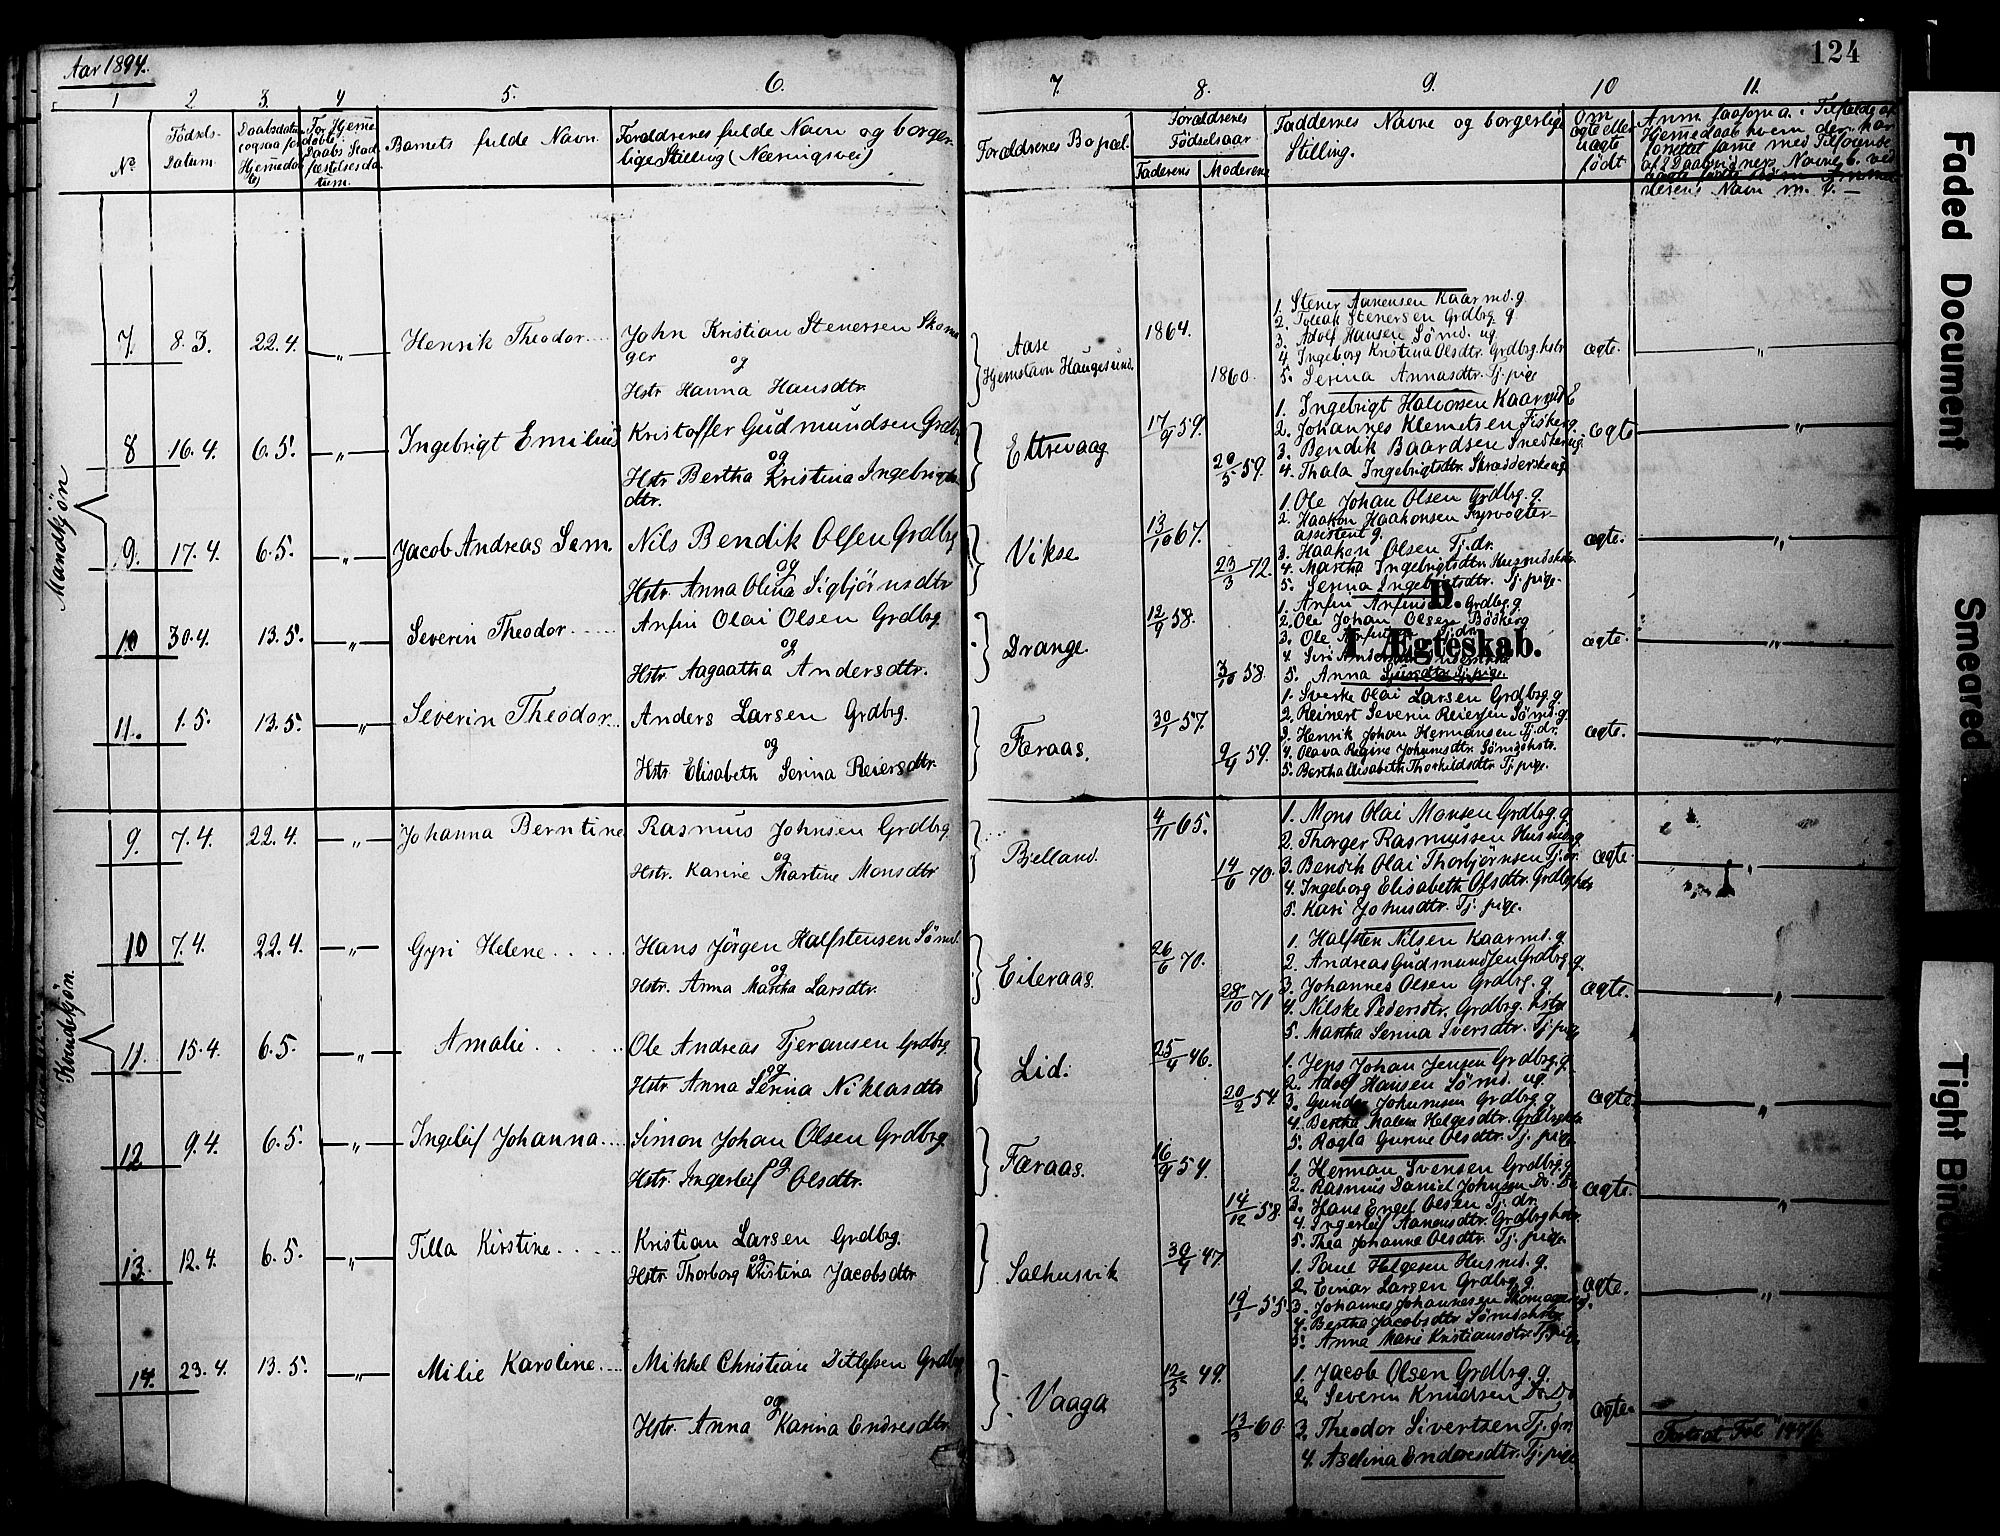 Aar 1894.
124
1 2 3. 4 5. 6. 7. 8. 9. 10 11.
No
Fødsels-
datum.
Daabsdatum
Barnets fulde Navn.
Forældrenes fulde Navn og borger-
lige Stilling (Næringsvei)
Forældrenes Bopæl.
Forældrenes
Fødselsaar
Faderens Moderens
Faddernes Navne og borgerlige
Stilling.
Om
ægte eller
uægte
født
Mandkjøn
7. 8.3. 22.4. „ Henrik Theodor John Kristian Stenersen Skoma
ger
og
Hstr Hanna Hansdtr.
Aase
Hjemstavn Haugesund.
1864.
1860.
1. Stener Aanensen Kaarmd. g.
2. Tollak Stenersen Grdbrg. g
3. Adolf Hansen Sømd. ug.
4. Ingeborg Kristina Olsdtr. Grdbrg. hstr
5. Serina Annasdtr. Tj. pige
ægte. „
8 16.4. 6.5. „ Ingebrigt Emilius Kristoffer Gudmundsen Grdbr
og
Hstr. Bertha Kristina Ingebrigts
dtr.
Ettrevaag
17/9 59.
20/5 59.
1. Ingebrigt Halvorsen Kaarmd E
2. Johannes Klemetsen Fisker g.
3. Bendik Baardsen Snedker ug.
4. Thala Ingebrigtsdtr.
ægte „
9. 17.4. 6.5. „ Jacob Andreas Sem. Nils Bendik Olsen Grdbrg
og
Hstr. Anna Olina Sigbjørnsdtr
Vikse
13/10 67.
23/3 72.
1. Ole Johan Olsen Grdbrg. g.
2. Haakon Haakonsen Fyrvogter-
assistent g.
3. Haakon Olsen Tj. dr.
4. Martha Ingebrigtsdtr
5. Serina Ingebrigtsdtr. Tj. pige.
ægte. „
10 30.4. 13.5. „ Severin Theodor Anfin Olai Olsen Grdbrg
og
Hstr. Aagaatha Andersdtr.
Drange.
12/9 58.
3/10 58.
B.
1. Anfin Grdbrg. g
2. Ole Johan Olsen Bødker g
3. Ole Tj. dr.
I Ægteskab.
5. Anna Tj. pige.
ægte. „
11. 1.5. 13.5. „ Severin Theodor Anders Larsen Grdbrg.
og
Hstr. Elisabeth Serina Reiersdtr.
Færaas.
30/1 57.
9/9 59.
1. Sverke Olai Larsen Grdbrg. g.
2. Reinert Severin Reiersen Sømd. g.
3. Henrik Johan Hermansen Tj. dr.
4. Olava Regine Johansdtr. Sømdshstr.
5. Bertha Elisabeth Thorkildsdtr Tj. pige.
ægte. „
Kvindekjøn.
9. 7.4. 22.4. „ Johanna Berntine Rasmus Johnsen Grdbrg.
og
Hstr. Karine Martine Monsdtr
Bjelland.
4/11 65.
14/6 70.
1. Mons Olai Monsen Grdbrg. g.
2. Thorger Rasmussen Husmd. g
3. Bendik Olai Thorbjørnsen Tj. dr.
4. Ingeborg Elisabeth Olsdtr. Grdbrghstr
5. Kari Johnsdtr. Tj. pige.
ægte. „
10 7.4. 22.4. „ Gyri Helene Hans Jørgen Halfstensen Sømd.
og
Hstr. Anna Martha Larsdtr.
Eileraas.
26/6 70.
28/10 71
1. Halfsten Nilsen Kaarmd. g.
2. Andreas Gudmundsen Grdbrg. g.
3. Johannes Olsen Grdbrg. g.
4. Nilske Pedersdtr. Grdbrg. hstr
5. Martha Serina Iversdtr. Tj. pige
ægte. „
11. 15.4. 6.5. „ Amalie Ole Andreas Tjeransen Grdbrg.
og
Hstr. Anna Serina Niklasdtr
Lid.
25/4 46.
20/2 54.
1. Jens Johan Jensen Grdbrg. g.
2. Adolf Hansen Sømd. ug.
3. Gunder Johannesen Grdbrg. g
4. Bertha Malene Helgesdtr. Grdbrghstr
5. Rogla Gurine Olsdtr. Tj. pige
ægte „
12 9.4. 6.5. „ Ingeleif Johanna Simon Johan Olsen Grdbrg.
og
Hstr. Ingerleif Olsdtr.
Færaas.
16/9 54.
14/12 58.
1. Herman Svensen Grdbrg. g
2. Rasmus Daniel Johnsen Do. Do
3. Hans Engel Olsen Tj. dr.
4. Ingerleif Aanensdtr. Grdbrghstr.
5. Thea Johanne Olsdtr. Tj. pige.
ægte. „
13. 12.4. 6.5. „ Tilla Kirstine Kristian Larsen Grdbrg.
og
Hstr. Thorborg Kristina Jacobsdtr
Salhusvik
30/9 47.
19/1 55.
1. Poul Helgesen Husmd. g.
2. Einar Larsen Grdbrg. g.
3. Johannes Johannesen Skomager g.
4. Bertha Jacobsdtr Sømdshstr
5. Anna Marie Kristiansdtr. Tj. pige
ægte. „
14. 23.4. 13.5. „ Milie Karoline Mikkel Christian Ditlefsen Grdbrg
og
Hstr. Anna Karina Endresdtr
Vaaga
12/3 49.
13/3 60
1. Jacob Olsen Grdbrg. g.
2. Severin Knudsen Do. Do
3. Theodor Sivertsen Tj. dr.
4. Aselina Enderesdtr. Tj. pige
ægte.
Faded Document
Smeared
Tight Bin